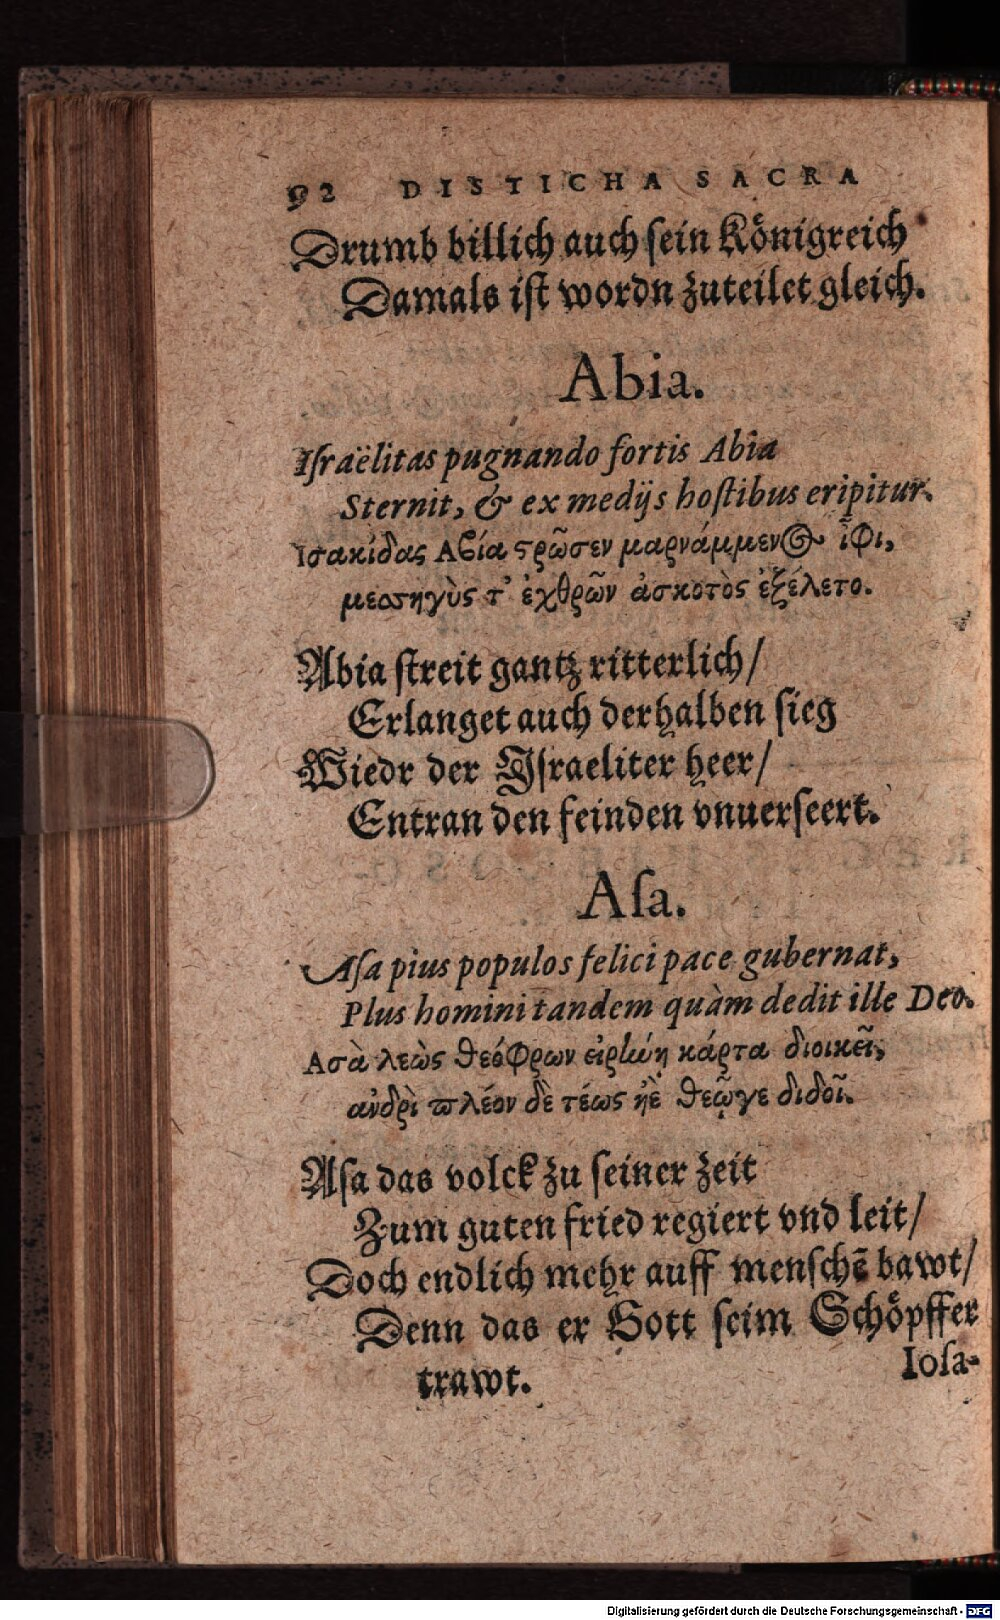 92 DISTICHA SACRA
Drumb billich auch sein Königreich
Damals ist wordn zuteilet gleich.
Abia.
Iſraëlitas pugnando fortis Abia
Sternit, & ex medijs hoſtibus eripitur.
Ισακίδας Αβία ςρῶσεν μαρνάμμεν⊕ ἶφι,
μεσηγὺς τ' ἐχθρῶν ἀσκοτὸς ἐξέλετο.
Abia ſtreit gantz ritterlich/
Erlanget auch derhalben ſieg
Wiedr der Iſraeliter heer/
Entran den feinden vnuerſeert.
Aſa.
Aſa pius populos felici pace gubernat,
Plus homini tandem quàm dedit ille Deo.
Ασὰ λεὼς θεόφρων εἰρήνη κάρτα διοικεῖ,
ἀνδρὶ πλέον δὲ τέως ἠὲ θεῷγε διδοῖ.
Aſa das volck zu ſeiner zeit
Zum guten fried regiert vnd leit/
Doch endlich mehr auff menſchē bawt/
Denn das er Gott ſeim Schöpffer
trawt.
Ioſa-
Digitalisierung gefördert durch die Deutsche Forschungsgemeinschaft - DFG